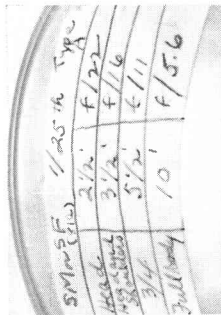 SM or SF 1/25 th Type
Head 2 1/2' f/22
Head and Shoulders 3 1/2' f/16
3/4 5 1/2' f/11
Full body 10' f/5.6